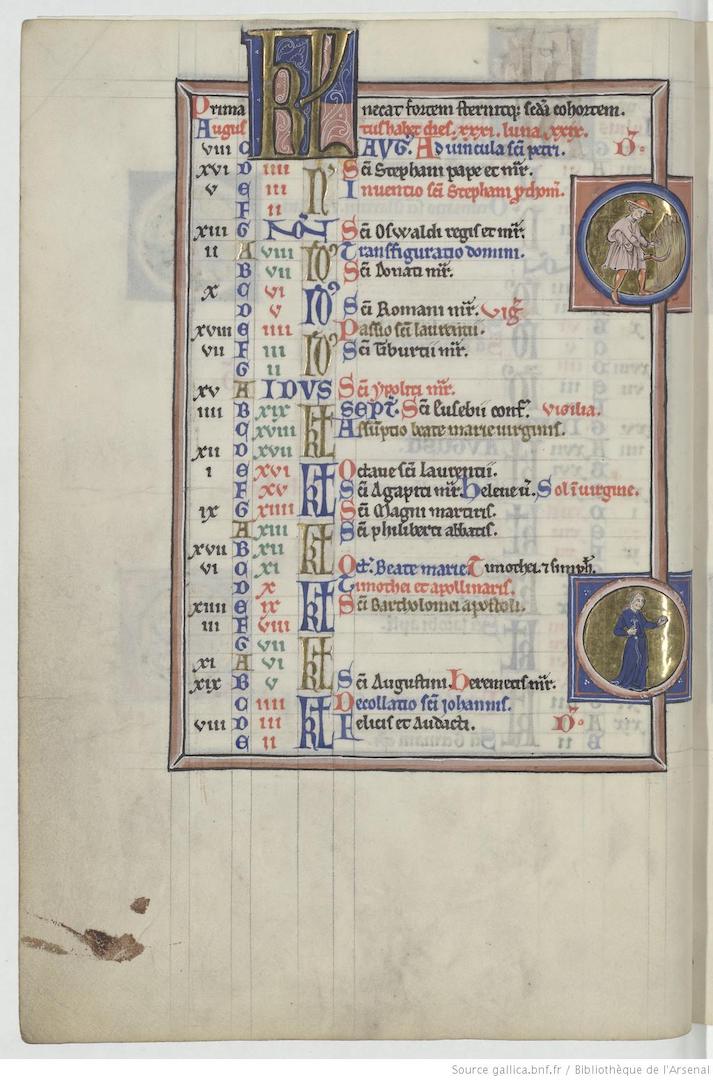 KL Prima necat fortem sternitq; scda cohortem.
Augustus habet dies .xxxi. luna .xxix.
viii C AUG. Ad vincula sci petri. D.
xvi D iiii N' Sci Stephani pape et mr.
v E iii Inventio sci Stephani
F ii
xiii G NON Sci Oswaldi regis et mr.
ii A viii ID' Transfiguratio domini.
B vii Sci Donati mr.
x C vi ID'
D v Sci Romani mr. Vig.
xviii E iiii ID' Passio sci laurentii.
vii F iii Sci Tiburtii mr.
G ii
xv A IDVS Sci ypoliti mr.
iiii B xix kl SEPT. Sci Eusebii conf. vigilia.
C xviii Assuptio beate marie virginis.
xii D xvii
i E xvi kl Octave sci Laurentii.
F xv Sci Agapiti mr. Helene Sol i virgine.
ix G xiiii Sci Magni martiris.
A xiii kl Sci philiberti abbatis.
xvii B xii
vi C xi Oct. Beate marie. Timothei. 7 simph.
D x kl Timothei et apollinaris.
xiiii E ix Sci Bartholomei apostoli.
iii F viii
G vii kl
xi A vi
xix B v Sci Augustini. Heremetis mr.
C iiii kl Decollatio sci iohannis.
viii D iii Felicis et Audacti. D.
E ii
Source gallica.bnf.fr / Bibliothèque de l'Arsenal